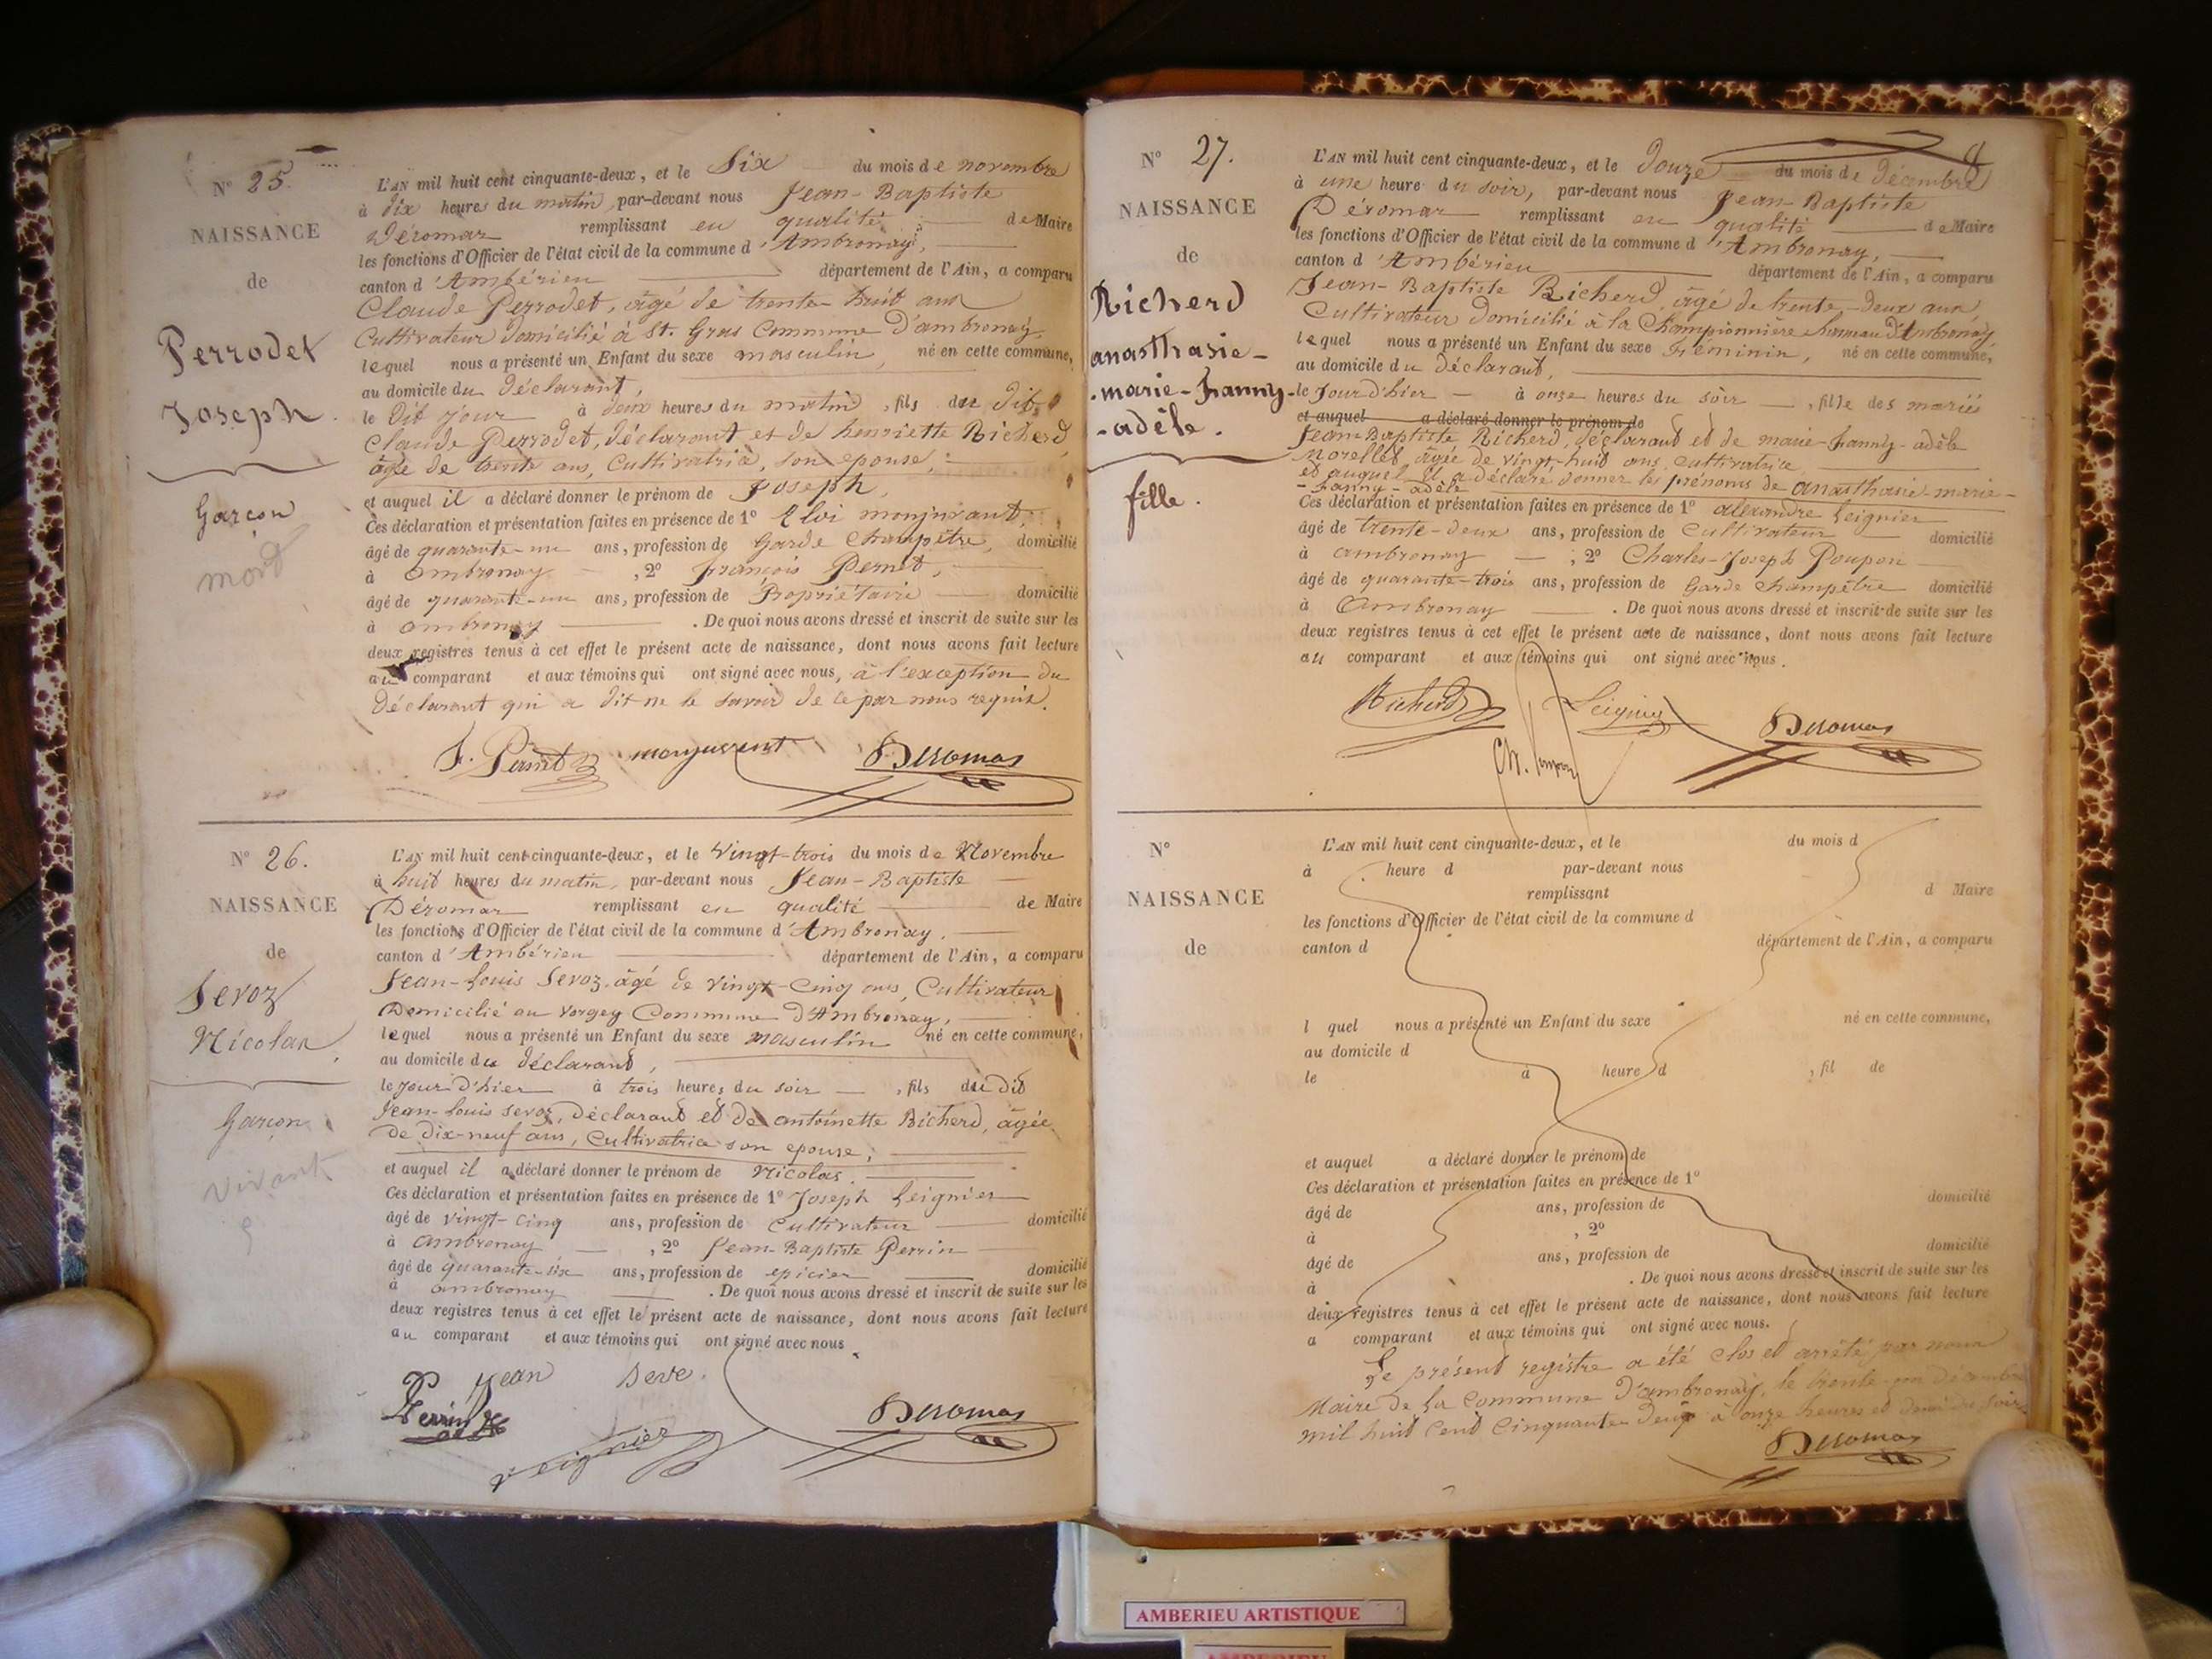 N° 25.
NAISSANCE
de
Perrodet
Joseph.
Garçon
mort
L'AN mil huit cent cinquante-deux, et le Six du mois de novembre
à dix heures du matin, par-devant nous Jean-Baptiste
Déromas remplissant en qualité de Maire
les fonctions d'Officier de l'état civil de la commune d'Ambronay,
canton d'Ambérieu département de l'Ain, a comparu
Claude Perrodet, âgé de trente-huit ans
Cultivateur domicilié à St. Gras Commune D'ambronay,
lequel nous a présenté un Enfant du sexe masculin, né en cette commune,
au domicile du déclarant,
le dit jour à deux heures du matin, fils du dit
Claude Perrodet, déclarant et de henriette Richerd,
âgée de trente ans, Cultivatrice, son epouse,
et auquel il a déclaré donner le prénom de Joseph.
Ces déclaration et présentation faites en présence de 1° Eloi monjuvant,
âgé de quarante-un ans, profession de Garde Champêtre, domicilié
à ambronay, 2° françois Pernet,
âgé de quarante-un ans, profession de Propriétaire domicilié
à ambronay. De quoi nous avons dressé et inscrit de suite sur les
deux registres tenus à cet effet le présent acte de naissance, dont nous avons fait lecture
au comparant et aux témoins qui ont signé avec nous, à l'exception du
déclarant qui a dit ne le savoir de ce par nous requis.
F. Pernet monjuvent Deromas
N° 26.
NAISSANCE
de
Sevoz
Nicolas,
Garçon
vivant
L'AN mil huit cent cinquante-deux, et le Vingt-trois du mois de Novembre
à huit heures du matin, par-devant nous Jean-Baptiste
Déromas remplissant en qualité de Maire
les fonctions d'Officier de l'état civil de la commune d'Ambronay,
canton d'Ambérieu département de l'Ain, a comparu
Jean-Louis Sevoz, âgé de vingt-cinq ans, Cultivateur
Domicilié au Vorgey Commune D'Ambronay,
lequel nous a présenté un Enfant du sexe masculin né en cette commune,
au domicile du déclarant,
le jour d'hier à trois heures du soir, fils du dit
Jean-Louis Sevoz, déclarant et de antoinette Richerd, âgée
de dix-neuf ans, Cultivatrice son epouse,
et auquel il a déclaré donner le prénom de Nicolas.
Ces déclaration et présentation faites en présence de 1° Joseph Leignier
âgé de vingt-cinq ans, profession de Cultivateur domicilié
à ambronay, 2° Jean-Baptiste Perrin
âgé de quarante-six ans, profession de epicier domicilié
à ambronay. De quoi nous avons dressé et inscrit de suite sur les
deux registres tenus à cet effet le présent acte de naissance, dont nous avons fait lecture
au comparant et aux témoins qui ont signé avec nous.
jean seve.
Perrin Deromas
Leignier
8
N° 27.
NAISSANCE
de
Richerd
anasthasie-
-marie-fanny-
-adèle.
fille.
L'AN mil huit cent cinquante-deux, et le Douze du mois de Décembre
à une heure du soir, par-devant nous Jean-Baptiste
Déromas remplissant en qualité de Maire
les fonctions d'Officier de l'état civil de la commune d'Ambronay,
canton d'Ambérieu département de l'Ain, a comparu
Jean-Baptiste Richerd, âgé de trente-deux ans,
Cultivateur domicilié à la Championnière hameau D'Ambronay,
lequel nous a présenté un Enfant du sexe Féminin, né en cette commune,
au domicile du déclarant,
le Jour d'hier à onze heures du soir, fille des mariés
et auquel a déclaré donner le prénom de
Jean-Baptiste Richerd, déclarant et de marie-fanny-adèle
Morellet âgée de vingt-huit ans, cultivatrice
et auquel il a déclaré donner les prénoms de anasthasie-marie-
-fanny-adèle
Ces déclaration et présentation faites en présence de 1° alexandre Leignier
âgé de trente-deux ans, profession de Cultivateur domicilié
à ambronay, 2° Charles-Joseph Poupon
âgé de quarante-trois ans, profession de Garde Champêtre domicilié
à Ambronay. De quoi nous avons dressé et inscrit de suite sur les
deux registres tenus à cet effet le présent acte de naissance, dont nous avons fait lecture
au comparant et aux témoins qui ont signé avec nous.
Richerd Leignier Deromas
Ch.
N°
NAISSANCE
de
L'AN mil huit cent cinquante-deux, et le du mois d
à heure d par-devant nous
remplissant d Maire
les fonctions d'Officier de l'état civil de la commune d
canton d département de l'Ain, a comparu
l quel nous a présenté un Enfant du sexe né en cette commune,
au domicile d
le à heure d, fil de
et auquel a déclaré donner le prénom de
Ces déclaration et présentation faites en présence de 1°
âgé de ans, profession de domicilié
à, 2°
âgé de ans, profession de domicilié
à. De quoi nous avons dressé et inscrit de suite sur les
deux registres tenus à cet effet le présent acte de naissance, dont nous avons fait lecture
a comparant et aux témoins qui ont signé avec nous.
Le présent registre a été clos et arrêté par nous
Maire de la Commune D'ambronay, le trente-un décembre
mil huit cent cinquante-deux à onze heures et demi du soir.
Deromas
AMBERIEU ARTISTIQUE
AMBERIEU